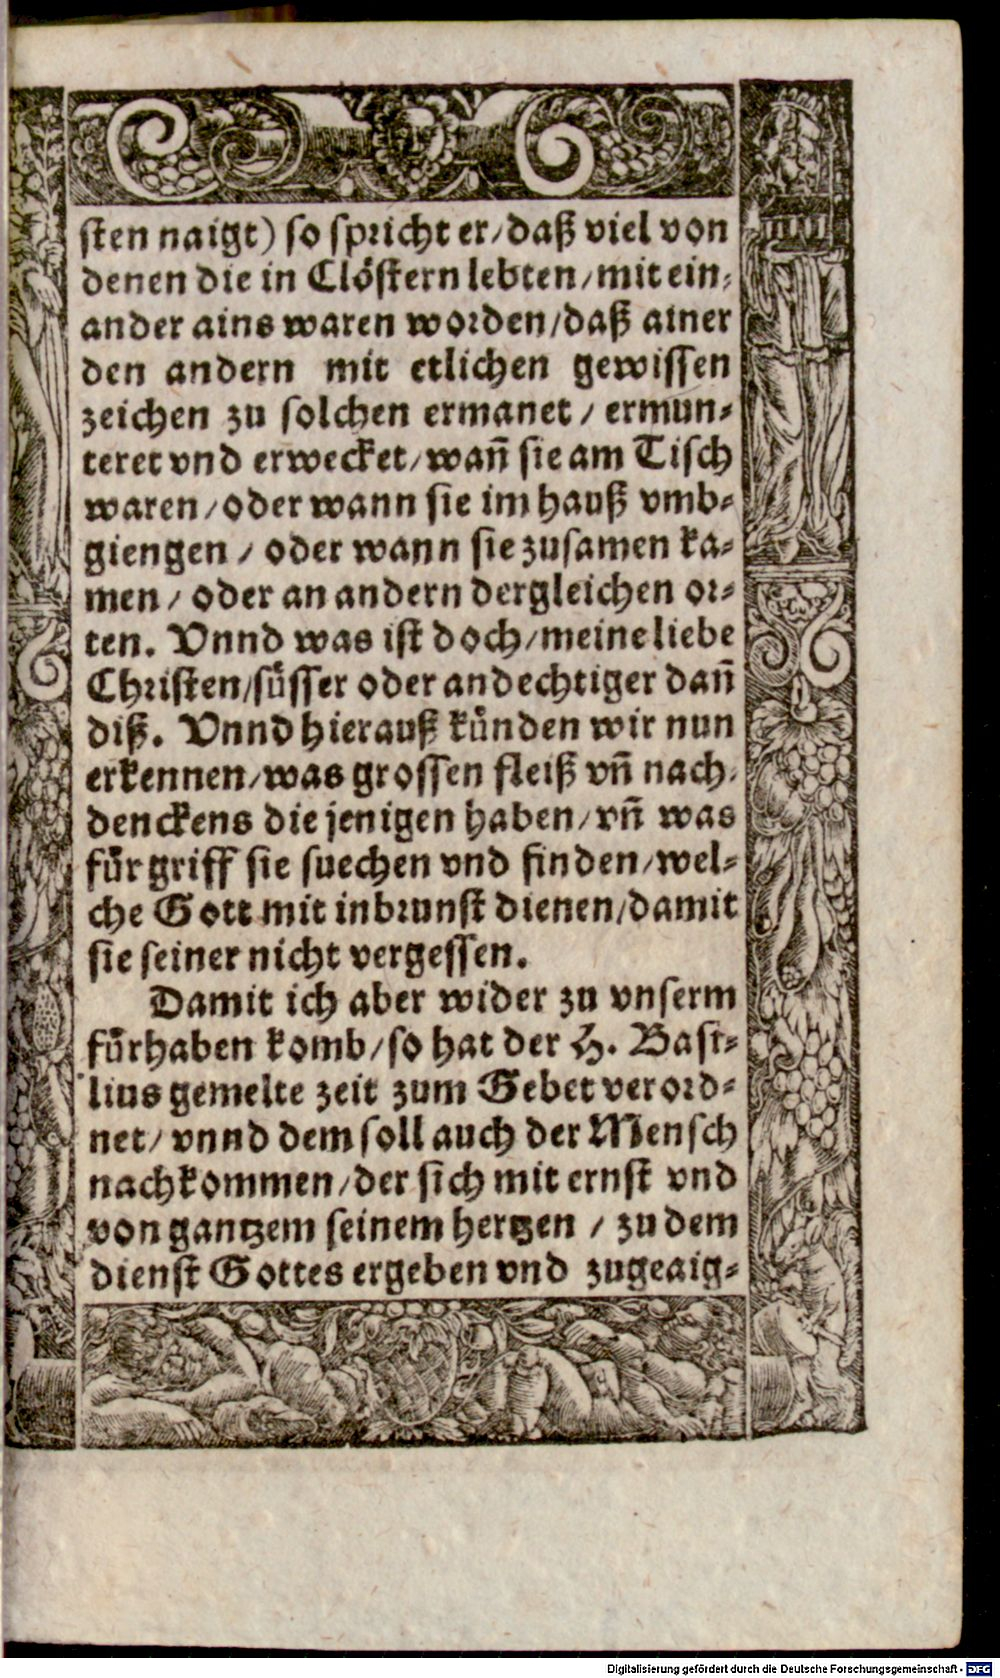 sten naigt) so spricht er/daß viel von
denen die in Clöstern lebten/mit ein-
ander ains waren worden/daß ainer
den andern mit etlichen gewissen
zeichen zu solchen ermanet/ ermun-
teret vnd erwecket/wañ sie am Tisch
waren/oder wann sie im hauß vmb-
giengen/ oder wann sie zusamen ka-
men/ oder an andern dergleichen or-
ten. Vnnd was ist doch/meine liebe
Christen/süsser oder andechtiger dañ
diß. Vnnd hierauß künden wir nun
erkennen/was grossen fleiß vñ nach-
denckens die jenigen haben/vñ was
fürgriff sie suechen vnd finden/wel-
che Gott mit inbrunst dienen/damit
sie seiner nicht vergessen.
Damit ich aber wider zu vnserm
fürhaben komb/so hat der H. Basi-
lius gemelte zeit zum Gebet verord-
net/ vnnd dem soll auch der Mensch
nachkommen/der sich mit ernst vnd
von gantzem seinem hertzen / zu dem
dienst Gottes ergeben vnd zugeaig-
Digitalisierung gefördert durch die Deutsche Forschungsgemeinschaft - DFG